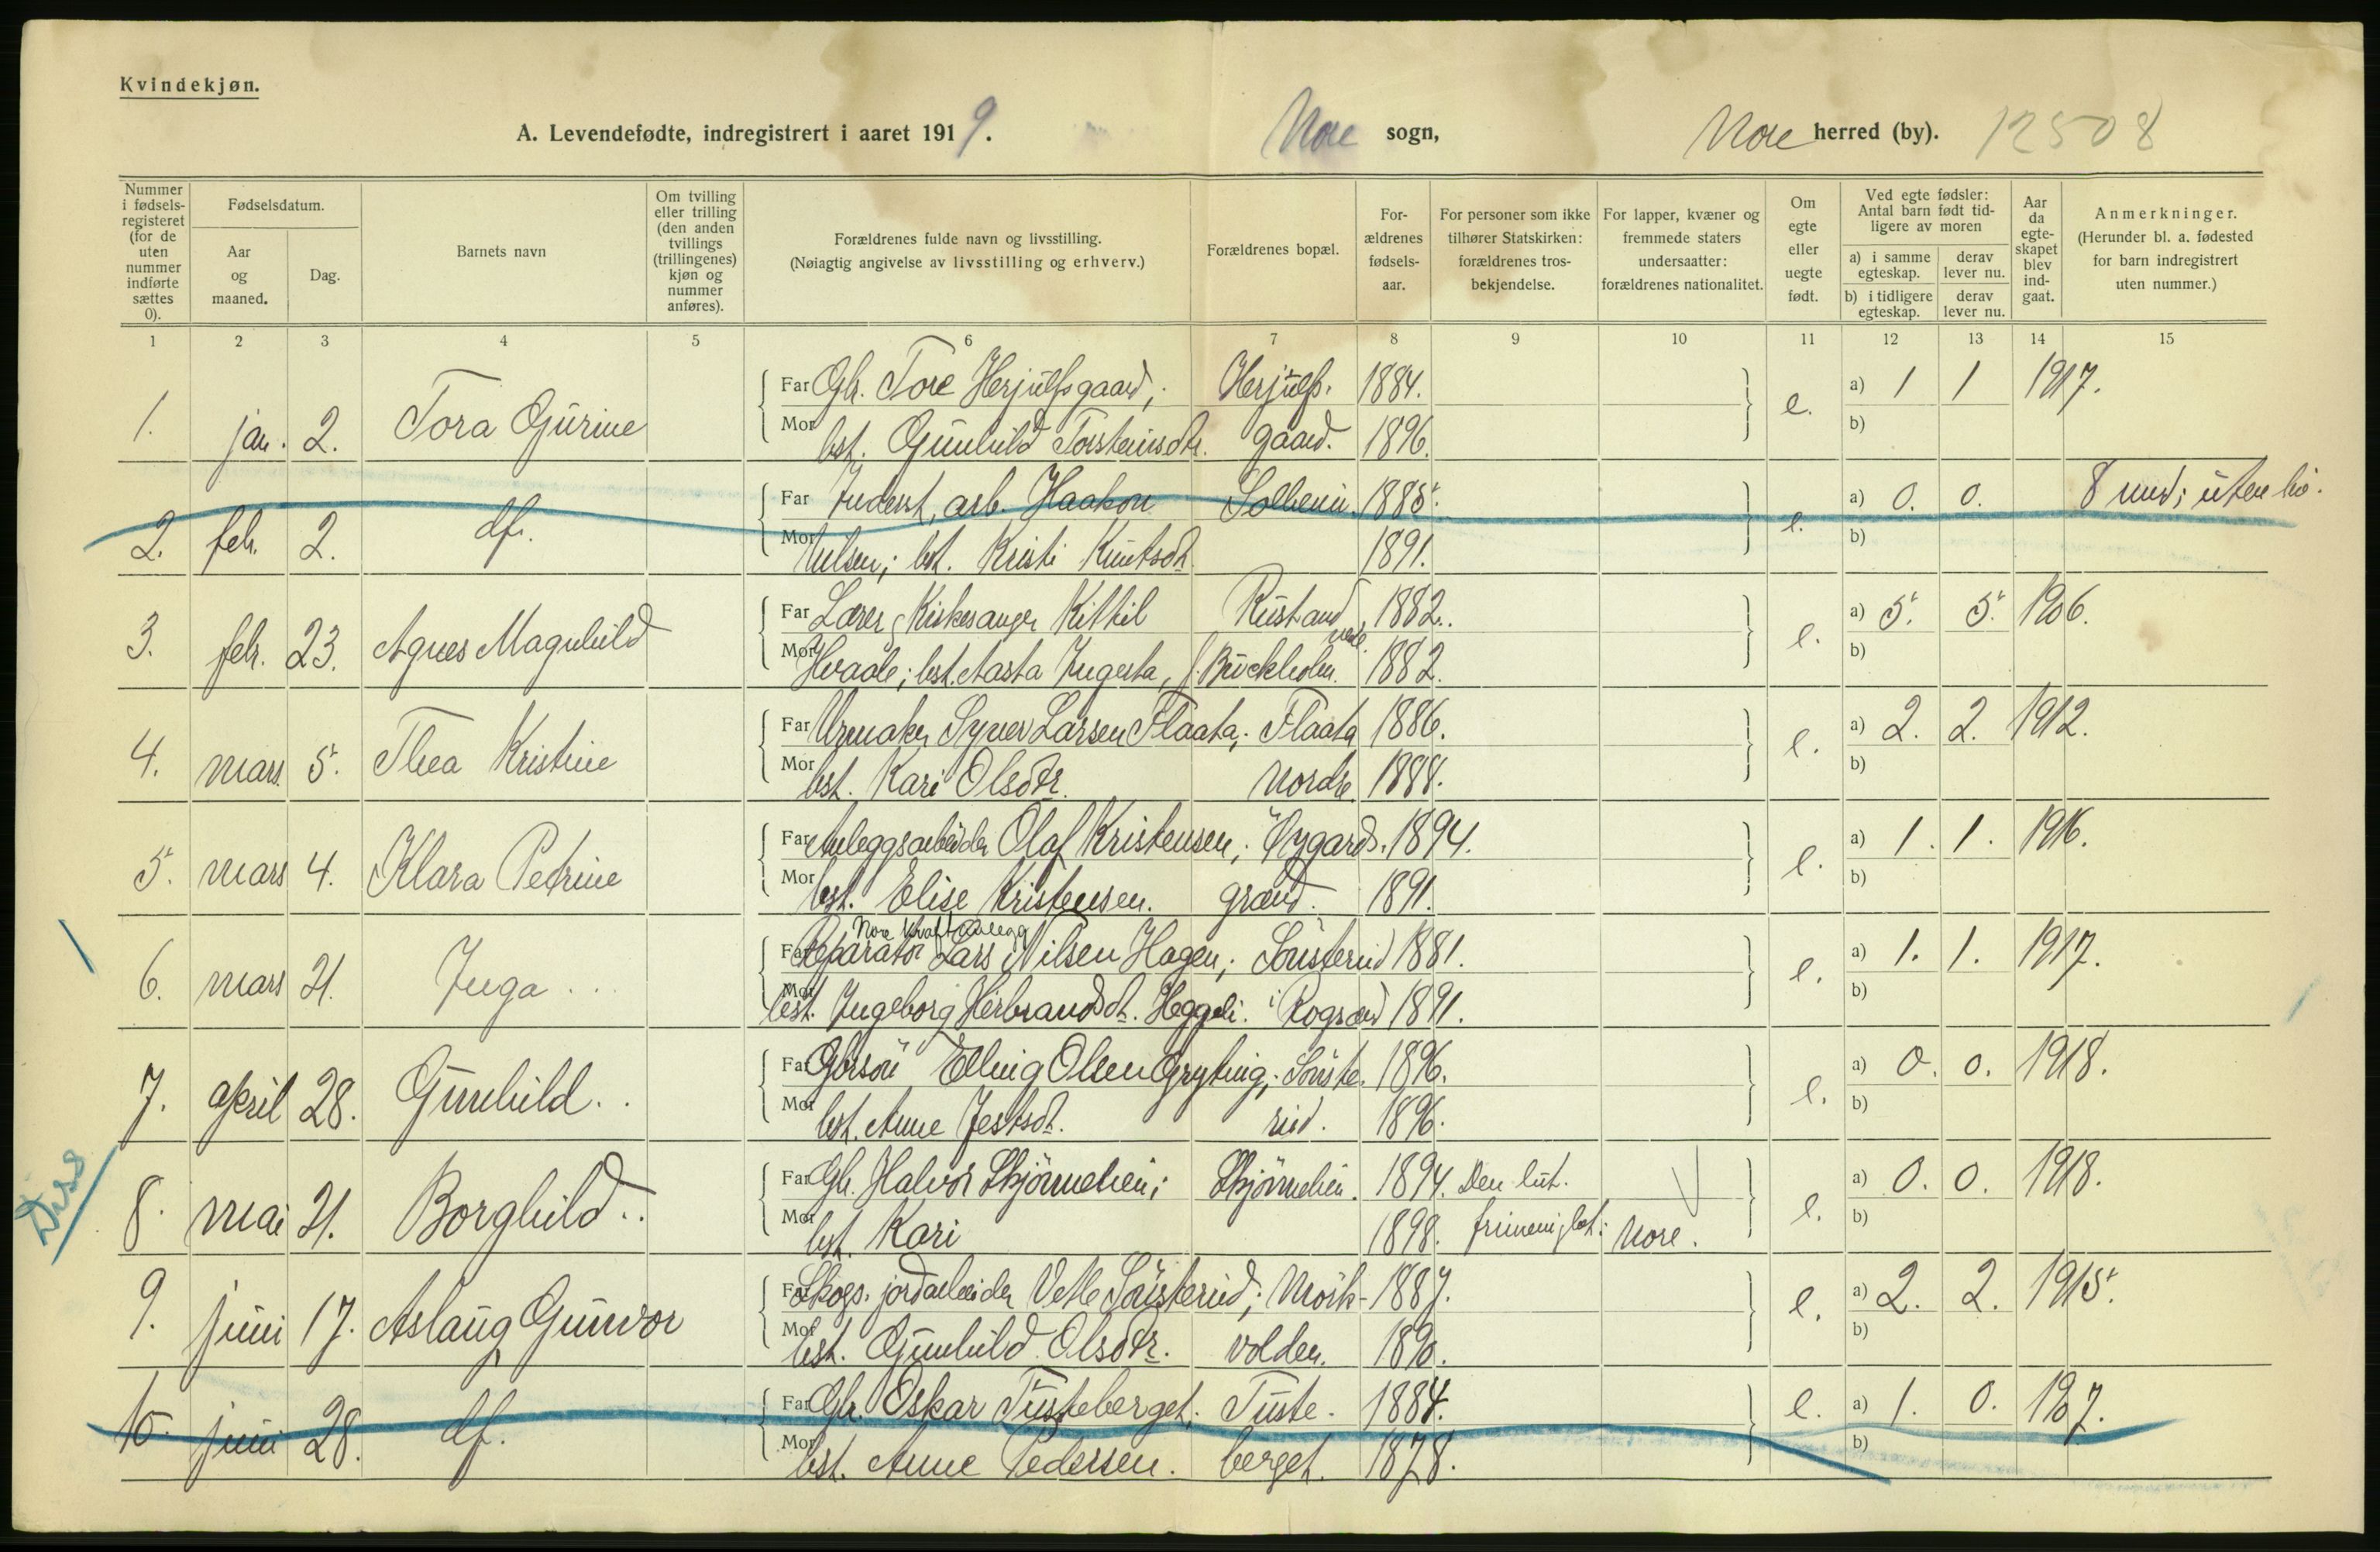 Kvindekjøn.
A. Levendefødte, indregistrert i aaret 1919. Nore sogn, Nore herred (by). 12508
Nummer i fødselsregisteret (for de uten nummer indførte sættes 0).
Fødselsdatum.
Aar og maaned.
Dag.
Barnets navn
Om tvilling eller trilling (den anden tvillings (trillingenes) kjøn og nummer anføres).
Forældrenes fulde navn og livsstilling.
(Nøiagtig angivelse av livsstilling og erhverv.)
Forældrenes bopæl.
Forældrenes fødselsaar.
For personer som ikke tilhører Statskirken: forældrenes trosbekjendelse.
For lapper, kvæner og fremmede staters undersaatter: forældrenes nationalitet.
Om egte eller uegte født.
Ved egte fødsler: Antal barn født tidligere av moren
a) i samme egteskap.
derav lever nu.
b) i tidligere egteskap.
derav lever nu.
Aar da egteskapet blev indgaat.
Anmerkninger.
(Herunder bl. a. fødested for barn indregistrert uten nummer.)
1 2 3 4 5 6 7 8 9 10 11 12 13 14 15
Far Gbr. Tore Herjulfsgaard; Herjulfs- 1884. a) 1 1 1917.
1. jan. 2. Tora Gurine e.
Mor hst. Gunhild Torsteinsdtr. gaard. 1896. b)
Far arb. Haakon 1885. a) 0. 0. 8 mnd; uten liv.
2. feb. 2. df. e.
Mor Nilsen; hst. Kristi Knutsdt. 1891. b)
Far Lærer, Kirkesanger Kittil Rustand 1882. a) 5. 5. 1906.
3. feb. 23. Agnes Magnhild nedr. e.
Mor Hvaale; hst. Aasta Ingerta, f. Buckholm. 1882. b)
Far Urmaker Syver Larsen Flaata; Flaata 1886. a) 2. 2. 1912.
4. mars 5. Thea Kristine e.
Mor hst. Kari Olsdtr. nordre 1888. b)
Far Anleggsarbeider Olaf Kristensen; Øygards- 1894. a) 1. 1. 1916.
5. mars 4. Klara Petrine e.
Mor hst. Elise Kristensen. grænd. 1891. b)
Nore Kraftanlegg
Far Reparatør Lars Nilsen Hagen; Sønsterud 1881. a) 1. 1. 1917.
6. mars 21. Inga e.
Mor hst. Ingeborg Herbrandsdt. Heggeli. i Rogsæd 1891. b)
Far Gbrsøn Elling Olsen Gryting; Sønste- 1896. a) 0. 0. 1918.
7. april 28. Gunhild e.
Mor hst. Anne Jestsdt. rud. 1896. b)
Far Gbr. Halvor Skjönnelien; Skjönnelien. 1894. Den lut. a) 0. 0. 1918.
Diss 8. mai 21. Borghild e.
Mor hst. Kari 1898. frimenighet: Nore. b)
Far Skogs. jordarbeider Vetle Sønsterud; Mørk- 1887. a) 2. 2. 1915.
9. juni 17. Aslaug Gunvor e.
Mor hst. Gunhild Olsdtr. volden. 1890. b)
Far Gbr. Oskar Tusteberget. Tuste- 1884. e. a) 1. 0. 1907.
10. juni 28. df.
Mor hst. Anne Pedersen. berget. 1878. b)